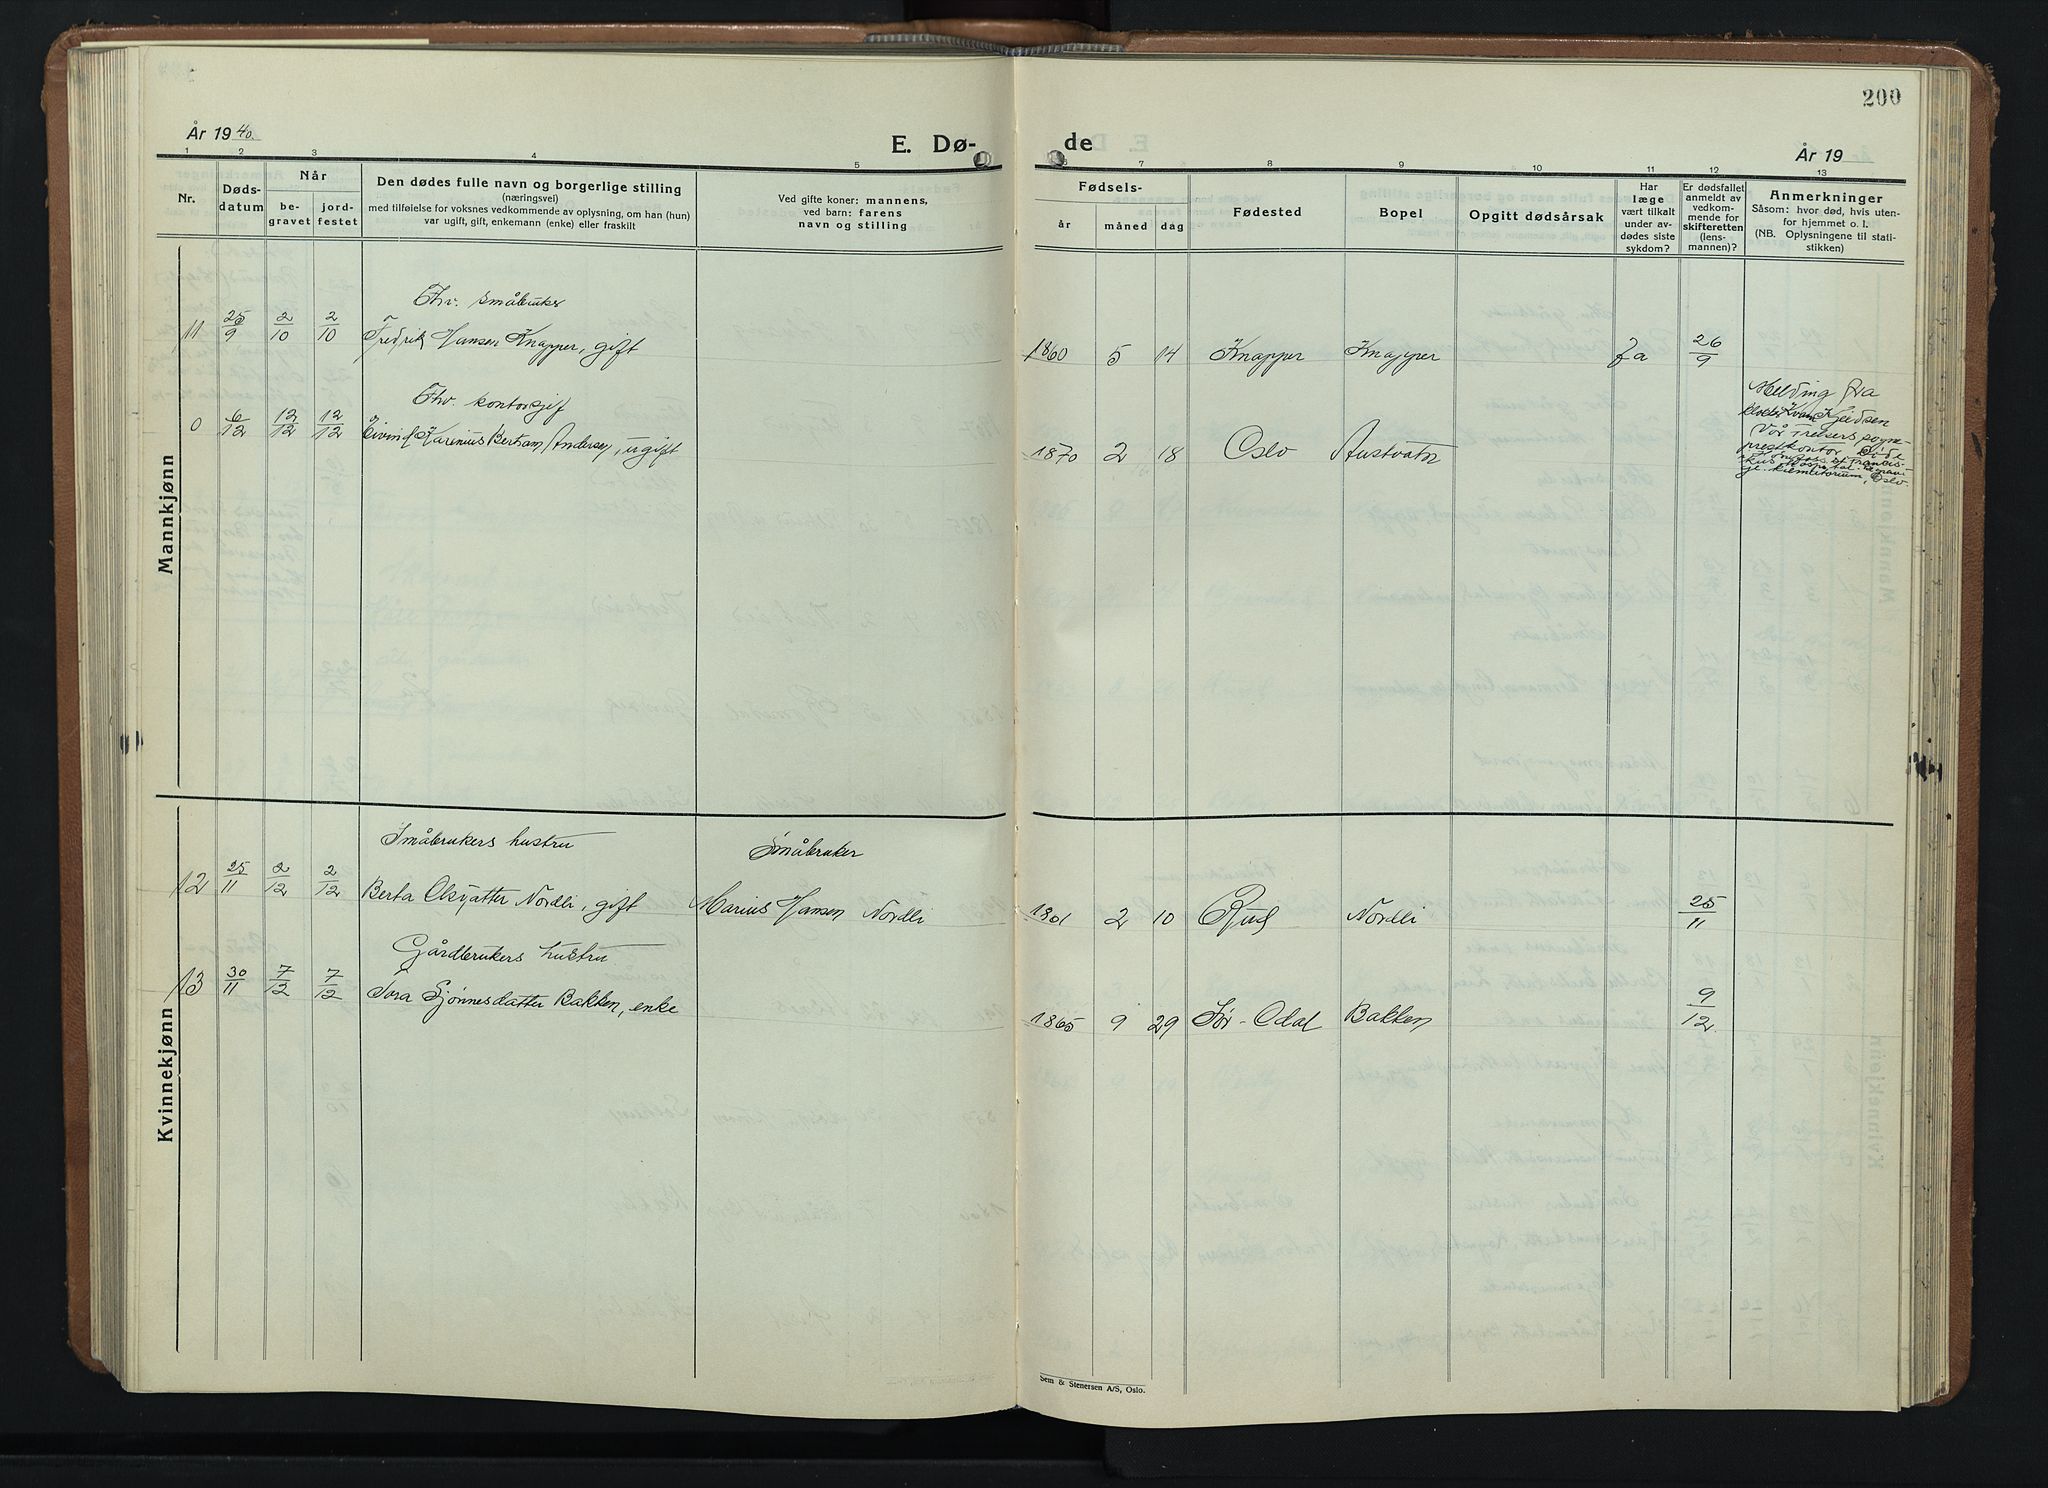 200
År 1940
E. Dø-
de
År 19
1 2 3 4 5
6 7 8 9 10 11 12 13
Nr.
Døds-
datum
Når
be-
gravet
jord-
festet
Den dødes fulle navn og borgerlige stilling
(næringsvei)
med tilføielse for voksnes vedkommende av oplysning, om han (hun)
var ugift, gift, enkemann (enke) eller fraskilt
Ved gifte koner: mannens,
ved barn: farens
navn og stilling
Fødsels-
år måned dag
Fødested
Bopel
Opgitt dødsårsak
Har
læge
vært tilkalt
under av-
dødes siste
sykdom?
Er dødsfallet
anmeldt av
vedkom-
mende for
skifteretten
(lens-
mannen)?
Anmerkninger
Såsom: hvor død, hvis uten-
for hjemmet o. l.
(NB. Oplysningene til stati-
stikken)
Mannkjønn
Fhv. småbruker
11 25/9 2/10 2/10 Fredrik Hansen Knapper, gift 1860 5 14 Knapper Knapper Ja 26/9
Fhv. kontorsjef
0 6/12 12/12 12/12 Eivind Karenius Bertram Andersen, ugift 1870 2 18 Oslo Austvatn
Melding fra
Vår Frelsers sogne-
prestkontor
krematorium, Oslo.
Kvinnekjønn
Småbrukers hustru Småbruker
12 25/11 2/12 2/12 Berta Olsdatter Nordli, gift Marius Hansen Nordli 1861 2 10 Rud Nordli 25/11
Gårdbrukers hustru
13 30/11 7/12 7/12 Tora Gjønnesdatter Bakken, enke 1865 9 29 Sør-Odal Bakken 9/12
Sem & Stenersen A/S, Oslo.